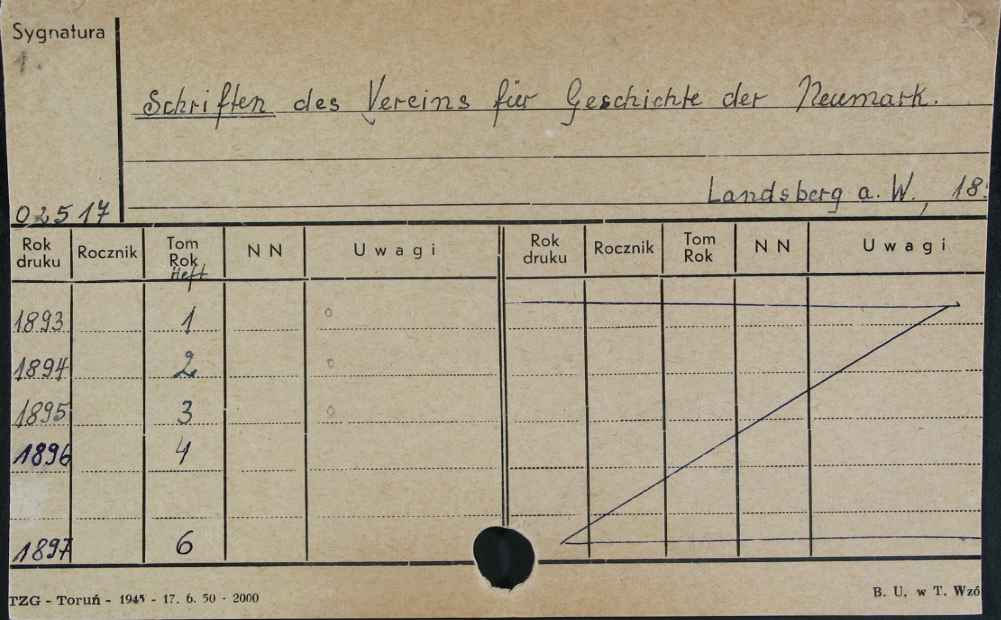 Sygnatura
1.
Schriften des Vereins für Geschichte der Neumark.
Landsberg a. W., 18
02517
Rok druku Rocznik Tom Rok Heft N N Uwagi Rok druku Rocznik Tom Rok N N Uwagi
1893 1
1894 2
1895 3
1896 4
1897 6
TZG - Toruń - 1945 - 17. 6. 50 - 2000 B. U. w T. Wzó